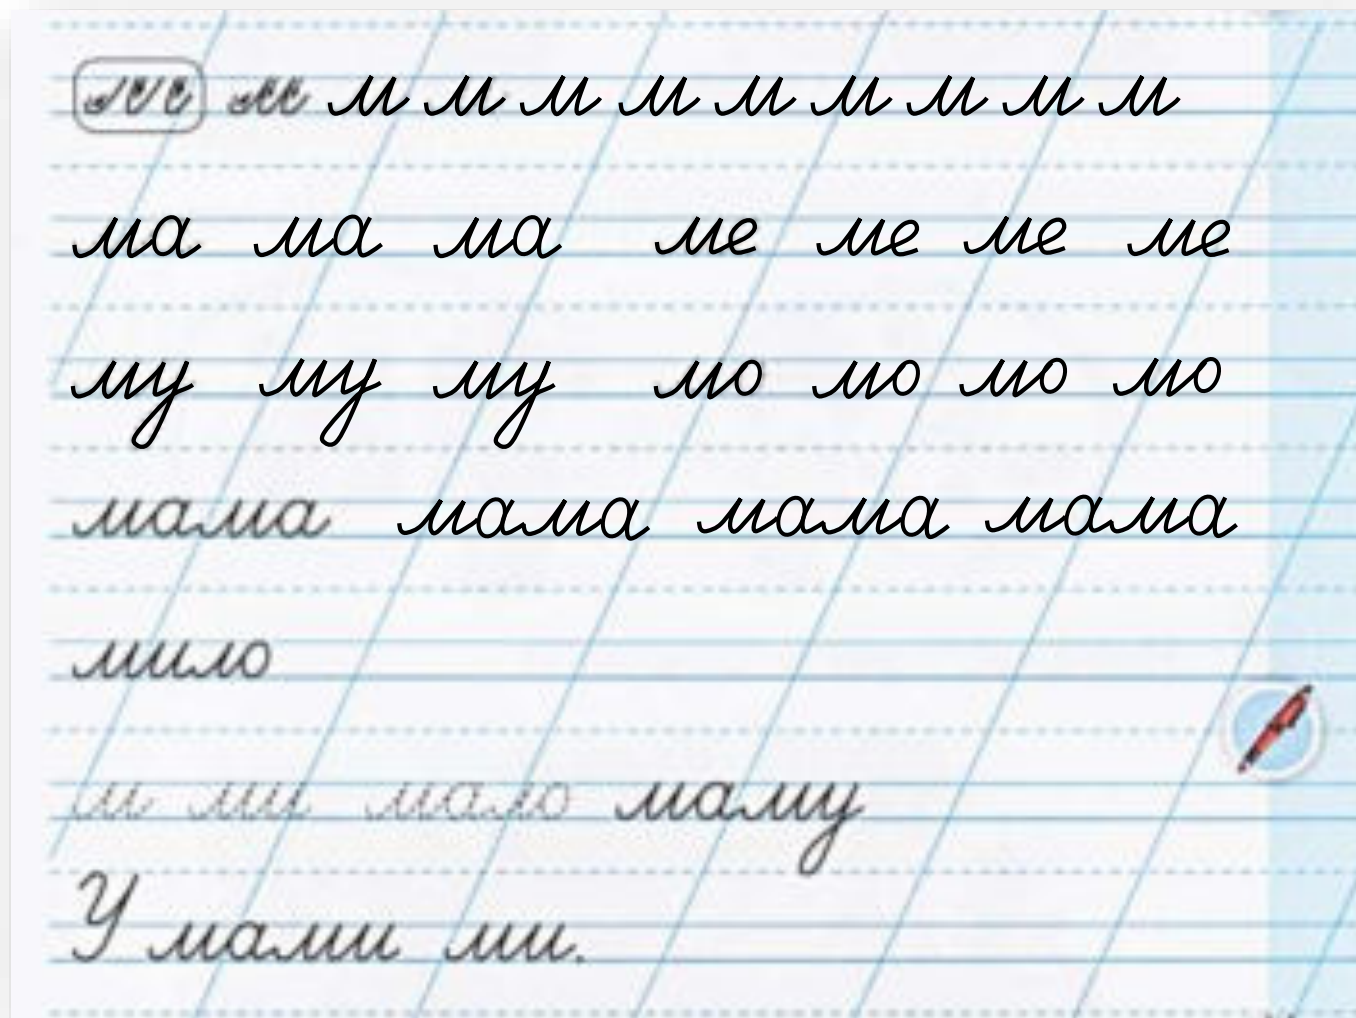 м м м м м м м м м м м
ма ма ма ме ме ме ме
му му му мо мо мо мо
мама мама мама мама
мило
м ми мало маму
У мами ми.